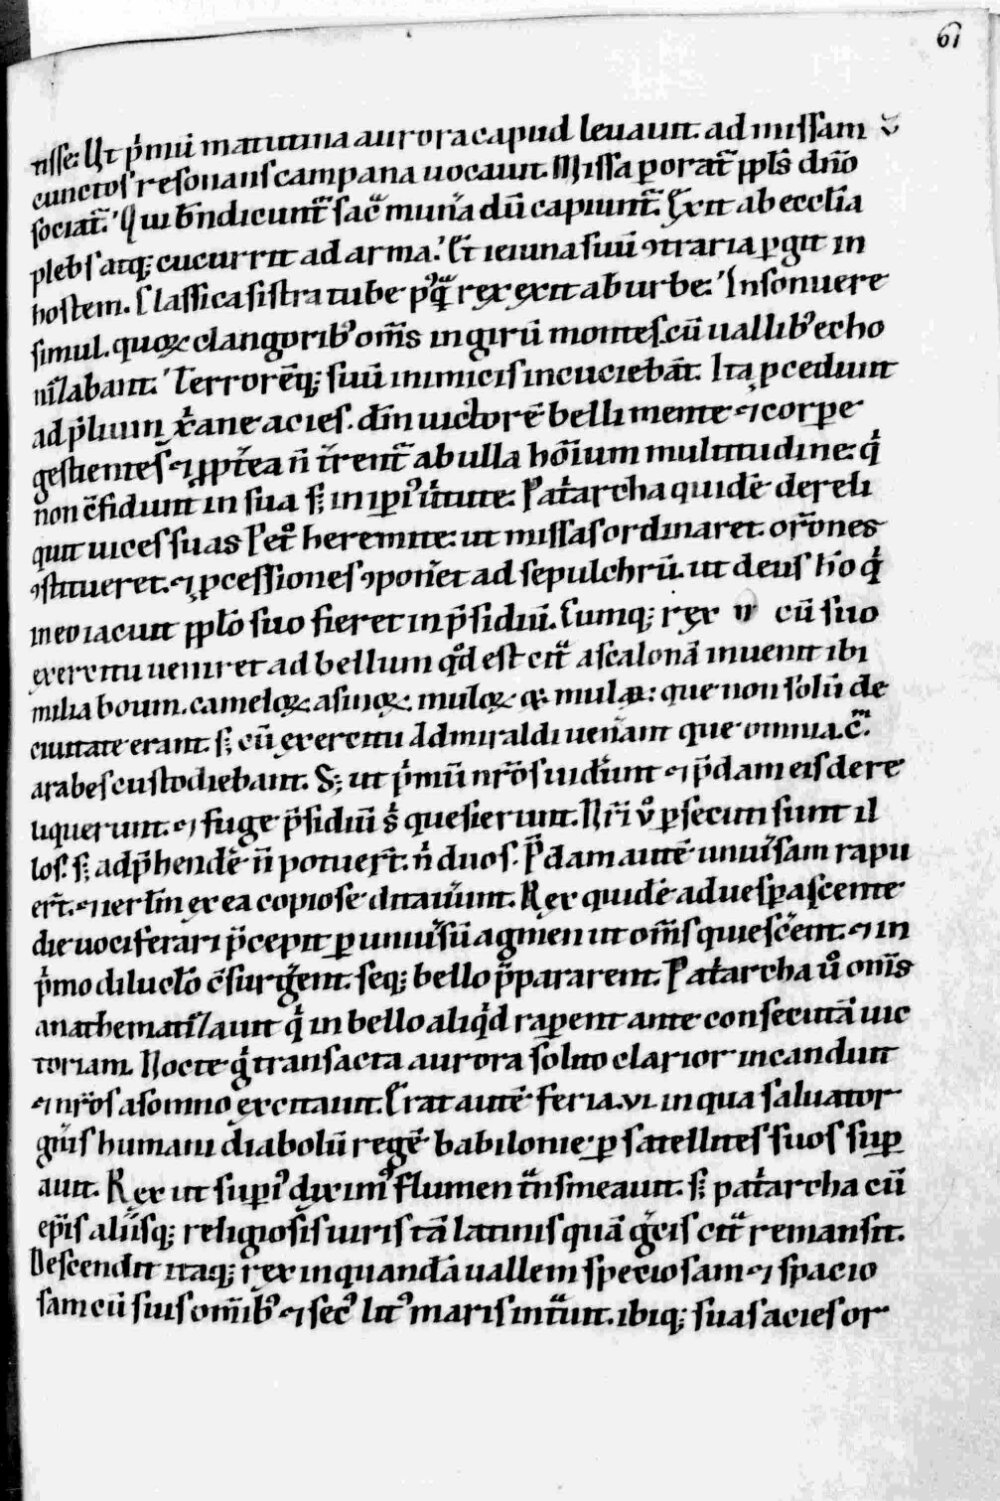 61
tisse: Ut p̍mū matutina aurora capud leuauit. ad missam
cunctos resonans campana uocauit. Missa ꝑorat̄ ppl̄s dn̄o
sociat̄. Qui bn̄dicunt̄ sac̄ mun̄a dū capiunt̄. Exit ab eccl̄ia
plebs atq; cucurrit ad arma. Et ieiuna suū ꝯtraria ꝑgit in
hostem. Classica sistra tube pꝰq̄ rex exit ab urbe. Insonuere
simul. quoꝝ clangorib; om̄s in girū montes cū uallib; echo
nīlabant. Terrorēq; suū inimicis incuciebāt. Ita ꝓcedunt
ad p̄lium xp̄iane acies. dn̄m uictorē belli mente ⁊ corꝑe
gestientes ⁊ ꝓpt̄ea n̄ t̄rent̄ ab ulla hoīum multitudine: q̍
non c̄fidunt in sua s; in ipīꝰ ūtute. Pat̍archa quidē dereli
quit uices suas Pet̊ heremite: ut missas ordinaret. or̄ones
ꝯstitueret. ⁊ ꝓcessiones ꝯponēt ad sepulchrū. ut deus h̊o q̍
in eo iacuit ppl̄o suo fieret in p̄sidiū. Cumq; rex cū suo
exercitu ueniret ad bellum qd̊ est cit̄ ascalonā inuenit ibi
milia boum. cameloꝝ asinoꝝ. muloꝝ. mulaꝝ: que non solū de
ciuitate erant s; cū exercitu admiraldi uen̄ant que omnia .c̄.
arabes custodiebant. S; ut p̍mū nr̄os uidēunt ⁊ p̄dam eis dere
liquerunt. ⁊ fuge p̄sidiū s̍ quesierunt. Nr̄i ů ꝑsecuti sunt il
los. s; adp̄hendē n̄ potuer̄t. n̍ duos. P̄dam autē uniūsam rapu
er̄t. ⁊ ierl̄m ex ea copiose ditauēunt. Rex quidē aduesꝑascente
die uociferari p̄cepit ꝑ uniūsū agmen ut om̄s quiesc̄ent. ⁊ in
p̍mo dilucl̄o c̄surḡent. seq; bello p̄pararent. Pat̍archa ů om̄s
anathematilauit q̍ in bello aliq̍d raꝑent ante consecutā uic
toriam. Nocte g̍ transacta aurora solito clarior incanduit
⁊ nr̄os a somno excitauit. Erat autē feria .vi. in qua saluator
gn̄is humani diabolū regē babilonie ꝑ satellites suos suꝑ
auit. Rex ut supiꝰ diximꝰ flumen t̄nsmeauit. s; pat̍archa cū
ep̄is aliisq; religiosis uiris tā latinis quā gc̄is cit̄ remansit.
Descendit itaq; rex in quandā uallem speciosam ⁊ spacio
sam cū suis om̄ib; ⁊ secꝰ litꝰ maris int̄uit. ibiq; suas acies or